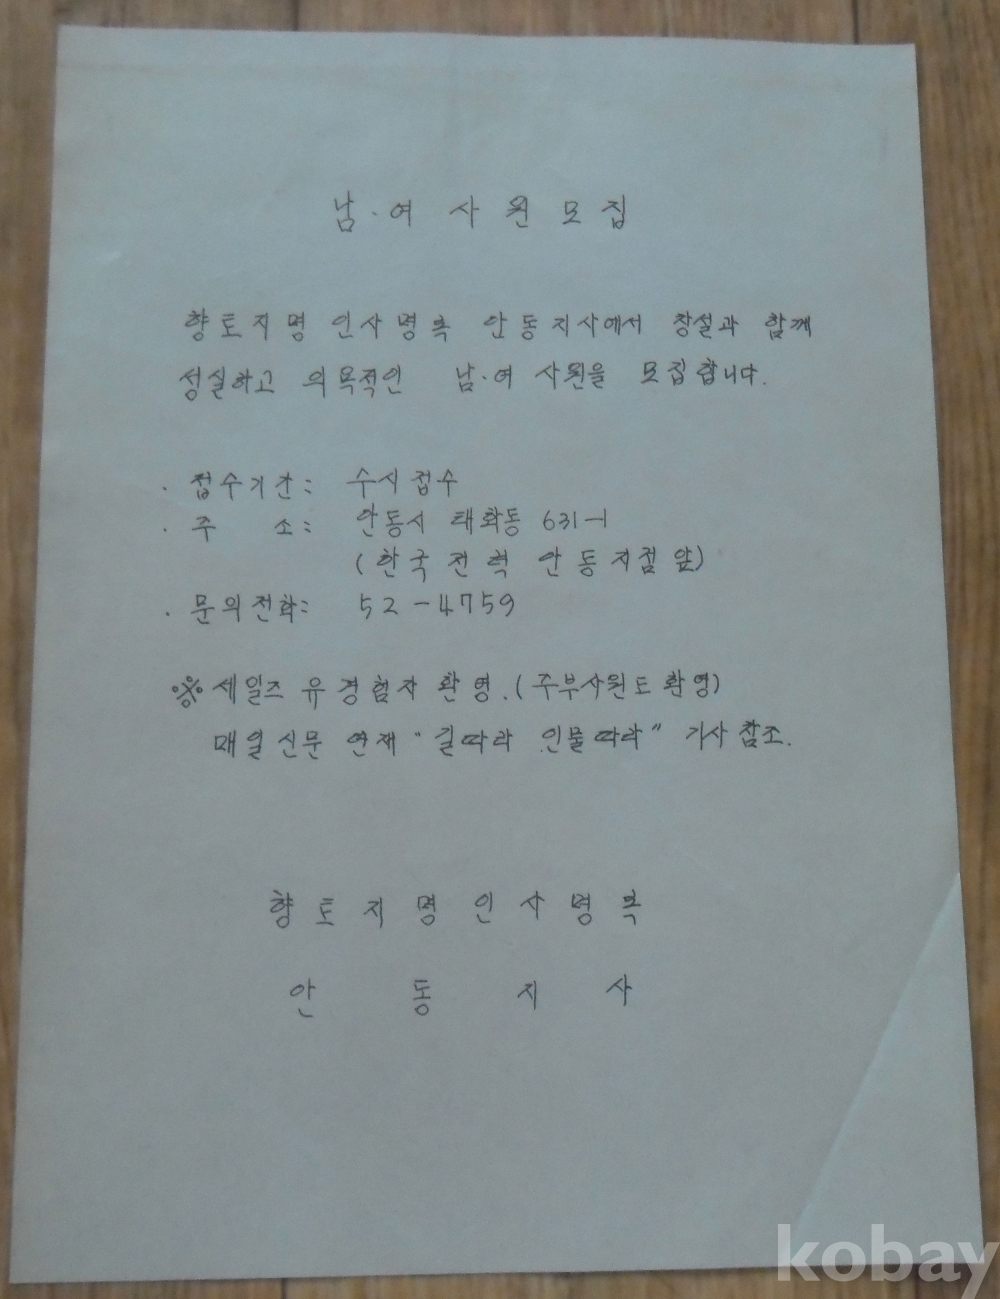 남·여 사원모집
향토지명 인사명록 안동지사에서 창설과 함께
성실하고 의목적인 남·여 사원을 모집합니다.
· 접수기간: 수시접수
· 주 소: 안동시 태화동 631-1
(한국전력 안동지점 앞)
· 문의전화: 52-4759
※ 세일즈 유경험자 환영.(주부사원도 환영)
매일신문 연재 "길따라 인물따라" 기사 참조.
향토지명인사명록
안동지사
kobay